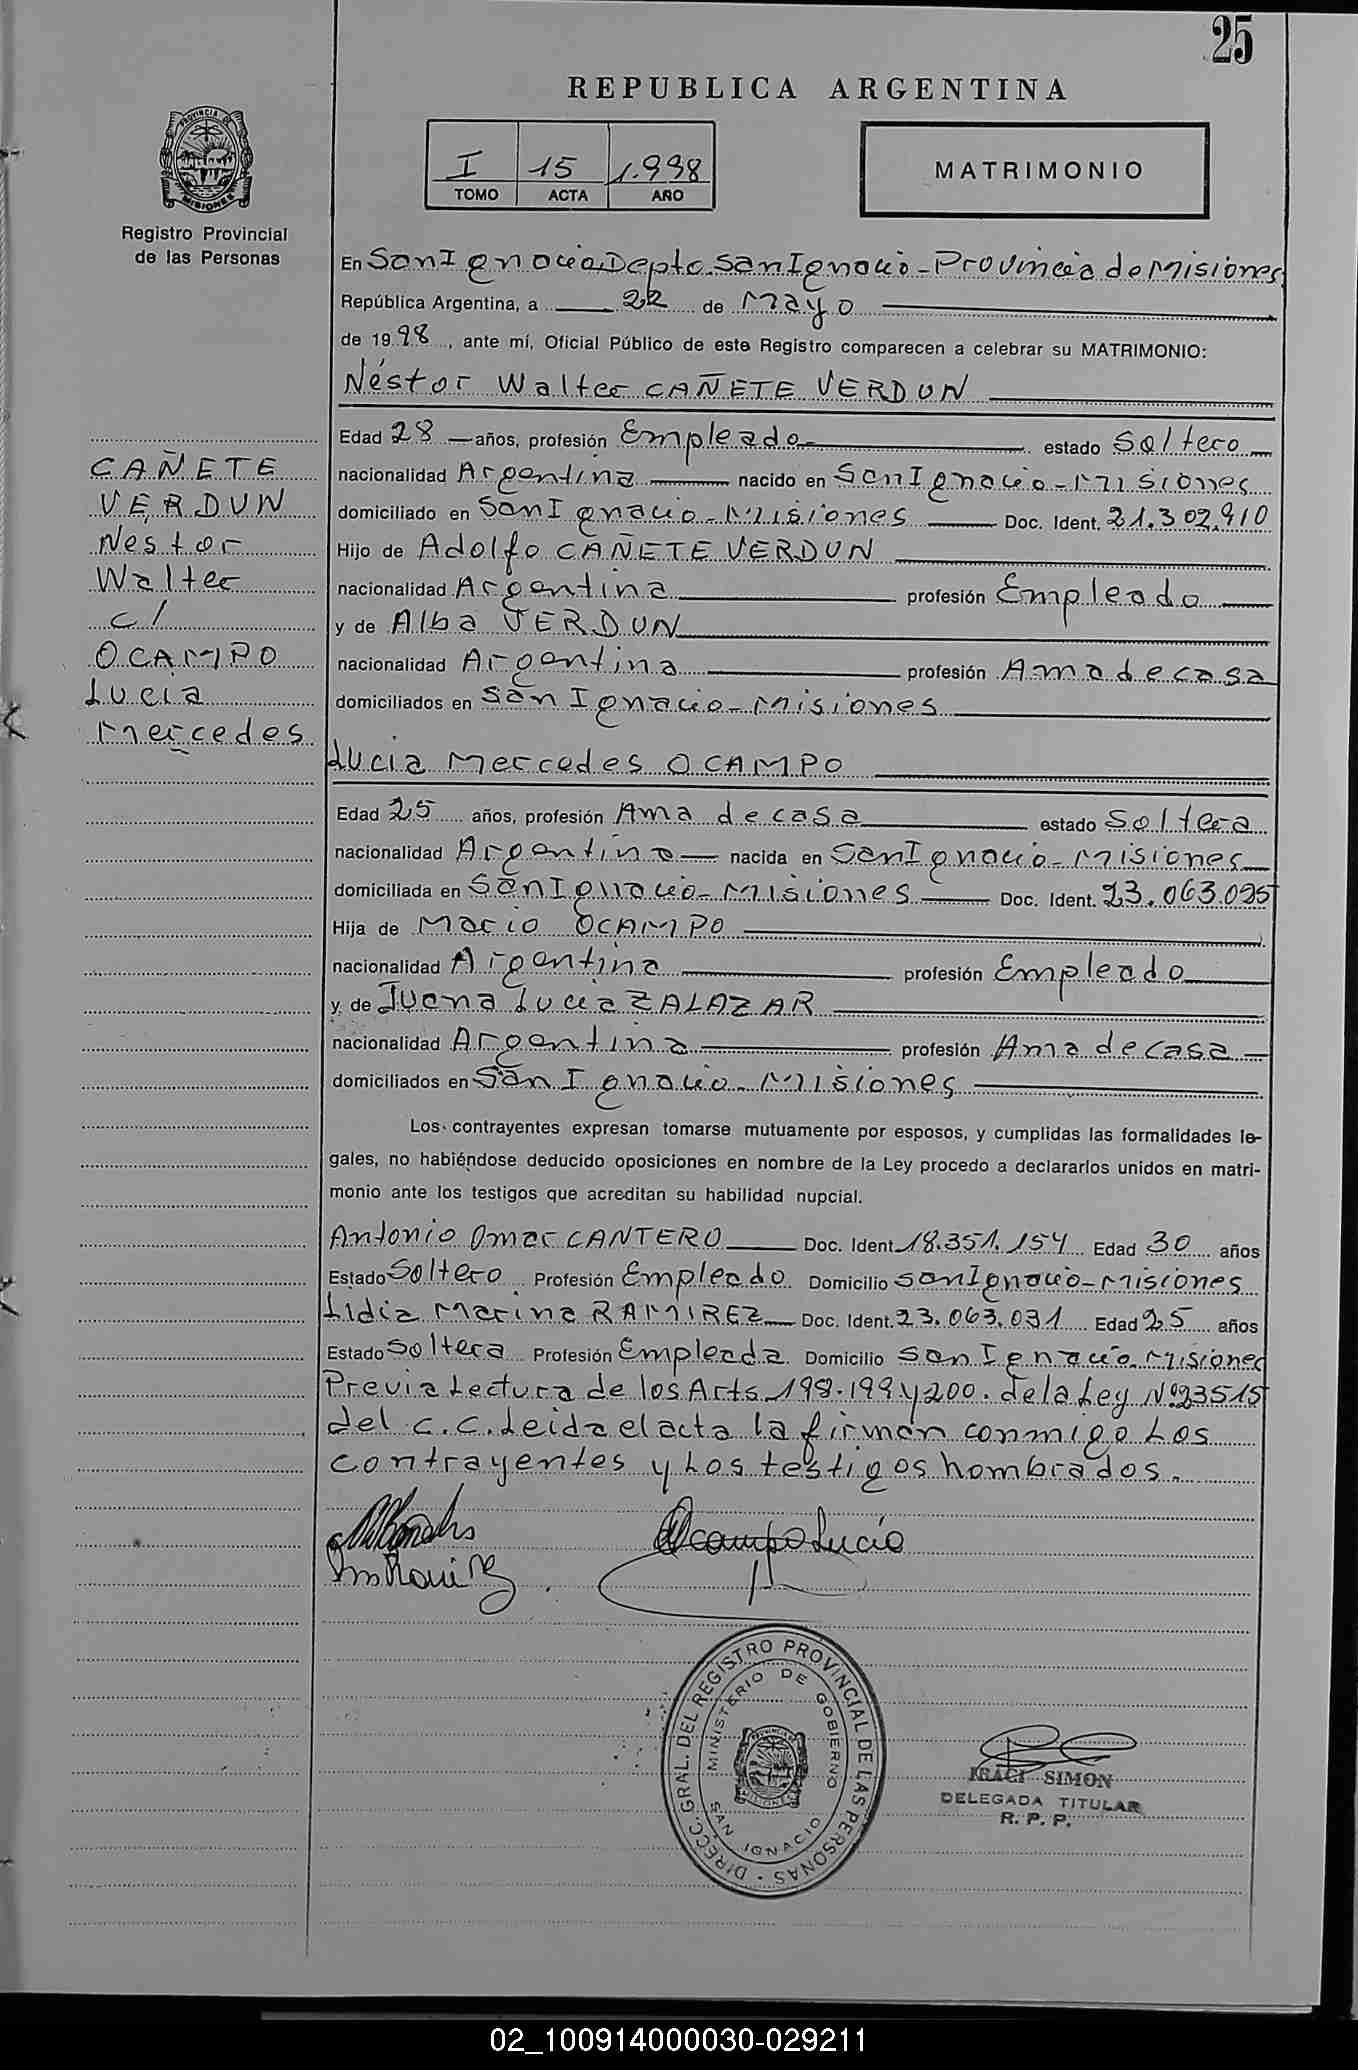 25
REPUBLICA ARGENTINA
I 15 1.998
TOMO ACTA AÑO
MATRIMONIO
PROVINCIA DE MISIONES
Registro Provincial
de las Personas
En San Ignacio, Depto. San Ignacio - Provincia de Misiones,
República Argentina, a 22 de Mayo
de 1998, ante mí, Oficial Público de este Registro comparecen a celebrar su MATRIMONIO:
Néstor Walter CAÑETE VERDUN
Edad 28 años, profesión Empleado estado Soltero
nacionalidad Argentina nacido en San Ignacio - Misiones
domiciliado en San Ignacio - Misiones Doc. Ident. 21.302.910
Hijo de Adolfo CAÑETE VERDUN
nacionalidad Argentina profesión Empleado
y de Alba VERDUN
nacionalidad Argentina profesión Ama de casa
domiciliados en San Ignacio - Misiones
CAÑETE
VERDUN
Nestor
Walter
c/
OCAMPO
Lucia
Mercedes
Lucia Mercedes OCAMPO
Edad 25 años, profesión Ama de casa estado Soltera
nacionalidad Argentina nacida en San Ignacio - Misiones
domiciliada en San Ignacio - Misiones Doc. Ident. 23.063.095
Hija de Mario OCAMPO
nacionalidad Argentina profesión Empleado
y de Juana Lucia ZALAZAR
nacionalidad Argentina profesión Ama de casa
domiciliados en San Ignacio - Misiones
Los contrayentes expresan tomarse mutuamente por esposos, y cumplidas las formalidades le-
gales, no habiéndose deducido oposiciones en nombre de la Ley procedo a declararlos unidos en matri-
monio ante los testigos que acreditan su habilidad nupcial.
Antonio Omar CANTERO Doc. Ident. 18.351.154 Edad 30 años
Estado Soltero Profesión Empleado Domicilio San Ignacio - Misiones
Lidia Marina RAMIREZ Doc. Ident. 23.063.031 Edad 25 años
Estado Soltera Profesión Empleada Domicilio San Ignacio - Misiones
Previa Lectura de los Arts. 198.199 y 200. de la Ley Nº 23515
del C.C. Leida el acta la firman conmigo Los
contrayentes y Los testigos nombrados.
Ocampo Lucia
DIRECC. GRAL. DEL REGISTRO PROVINCIAL DE LAS PERSONAS
MINISTERIO DE GOBIERNO
SAN IGNACIO
IRACI SIMON
DELEGADA TITULAR
R. P. P.
02_100914000030-029211